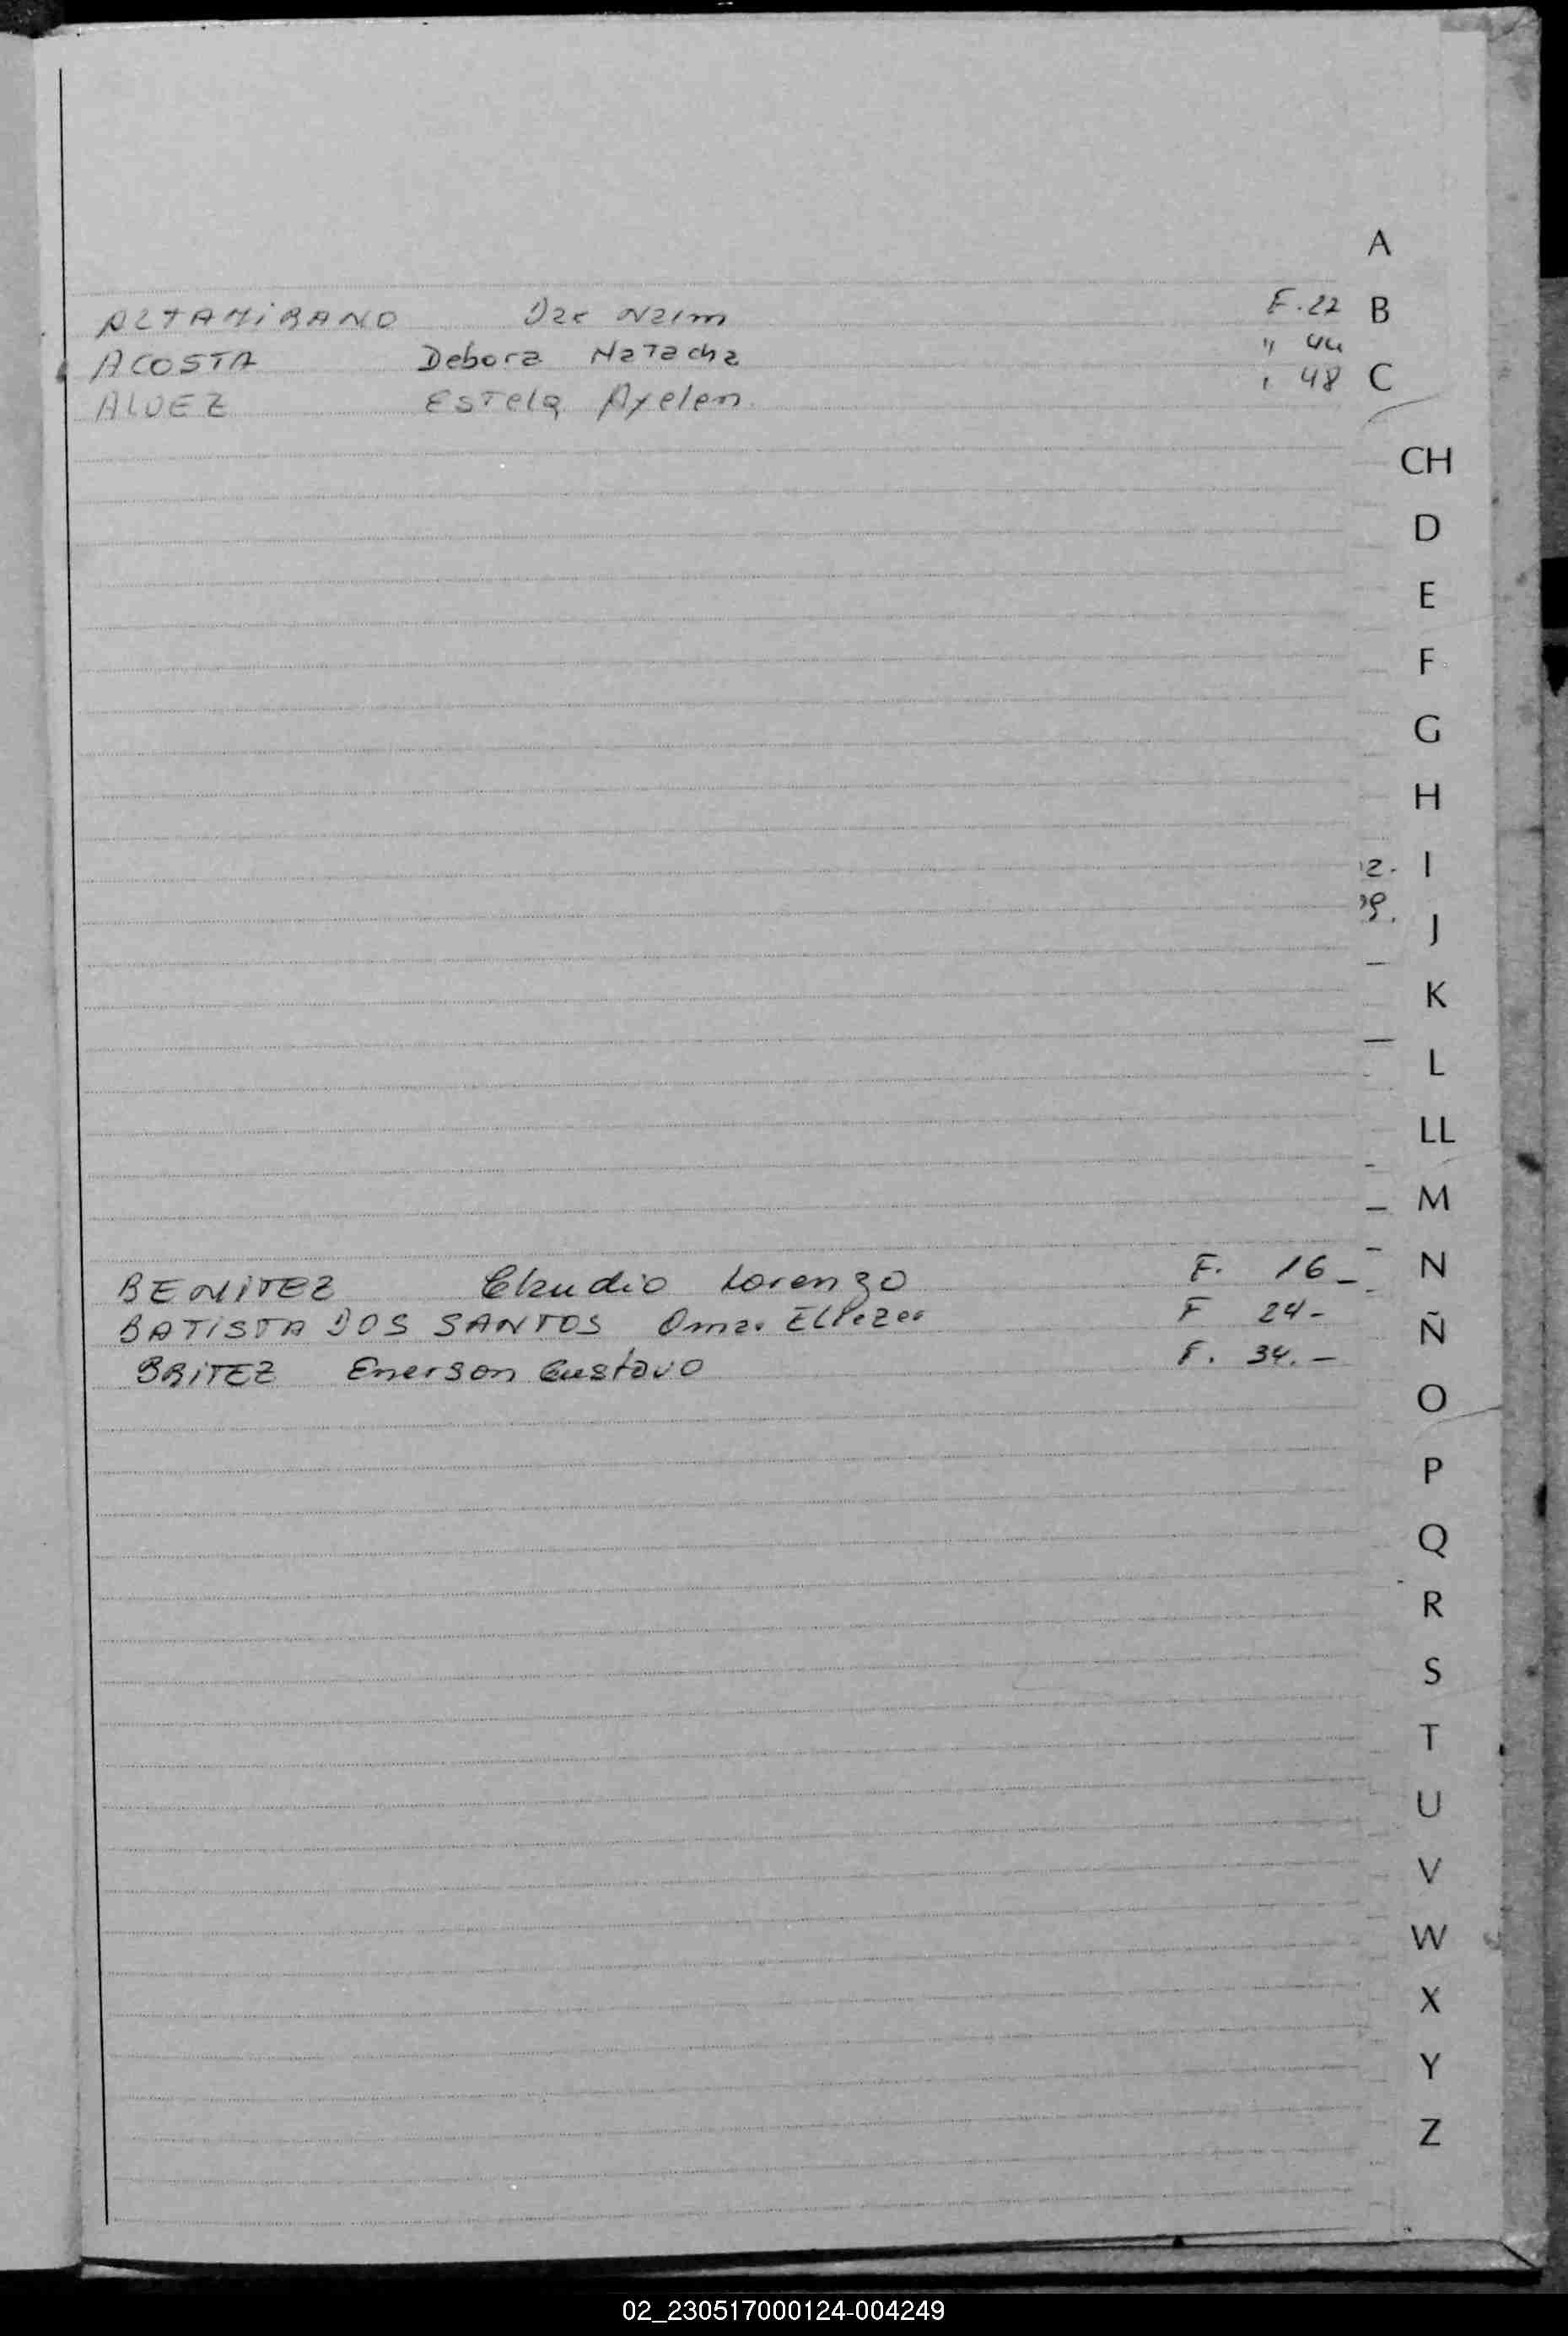 A
ALTAMIRANO Naim F. 22 B
ACOSTA Debora Natacha " 44
ALVEZ Estela Ayelen 48 C
CH
D
E
F
G
H
2. I
J
K
L
LL
M
BENITEZ Claudio Lorenzo F. 16_ N
BATISTA DOS SANTOS Omar F 24-
Ñ
BRITEZ Emerson Gustavo F. 34. -
O
P
Q
R
S
T
U
V
W
X
Y
Z
02_230517000124-004249